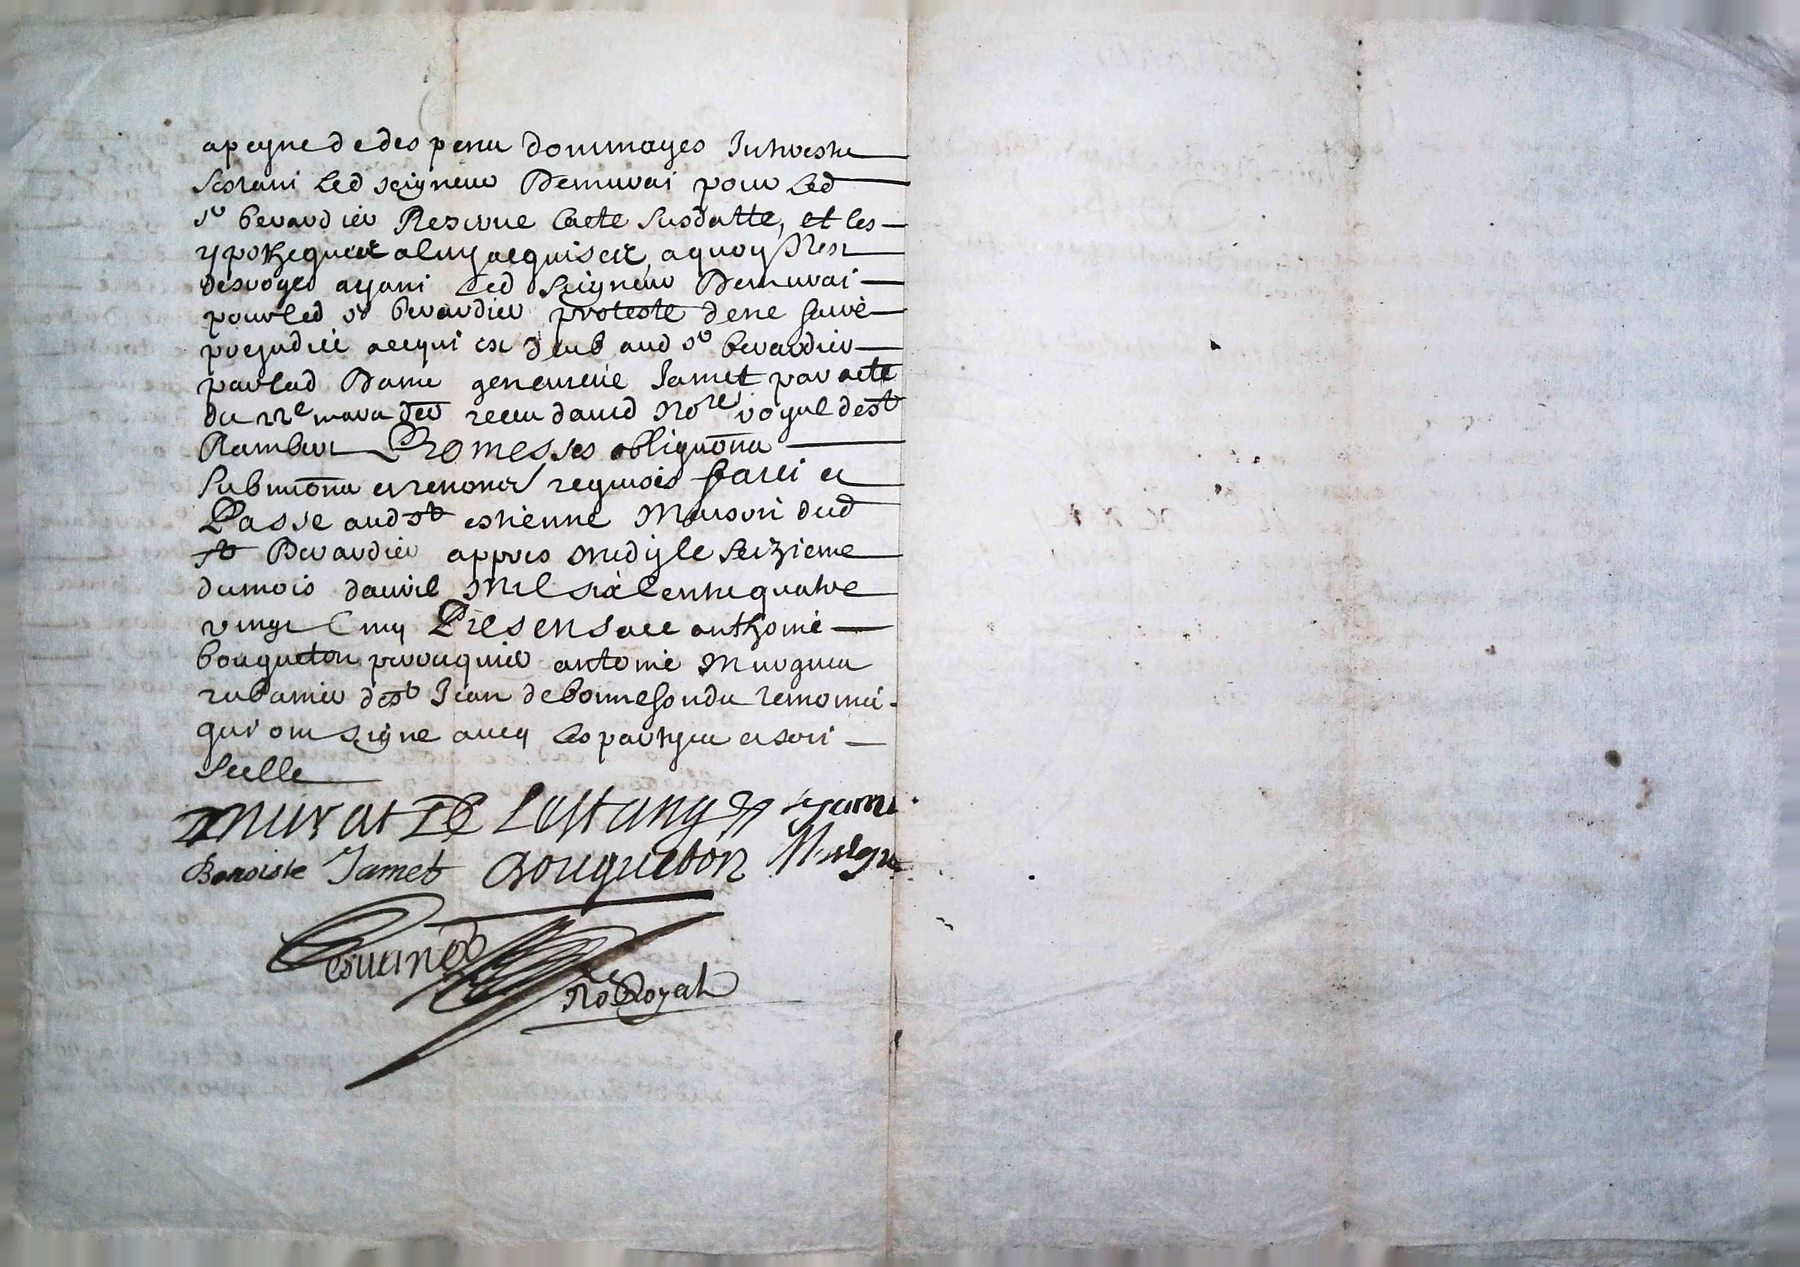 a peyne de des pens dommages Inthrestz
led seigneur Demurat pour led
Sr berardier Reserve lacte susdatte, et les
ypotheques a luy acquises, a quoy Nest
desroge ayant led Seigneur Demurat
pour led sr berardier proteste de ne faire
prejudice acqui aud sr berardier
par lad Dame Jamet par acte
du recu david Nore royal dest
Rambert Promesses obligaōns
Submiōns et renonce requises faict et
Passe aud st estienne Maison dud
sr Berardier appres Midy le seizieme
du mois davril Mil six Centz quatre
vingt Cinq Presens anthoine
bouqueton perruquier antoine Murgues
rubanier dest Jean de bonnefond
qui ont signe avecq les partyes et son
scelle
Murat De Lestang
Benoiste Jamet Bouqueton Murgue
No Royal